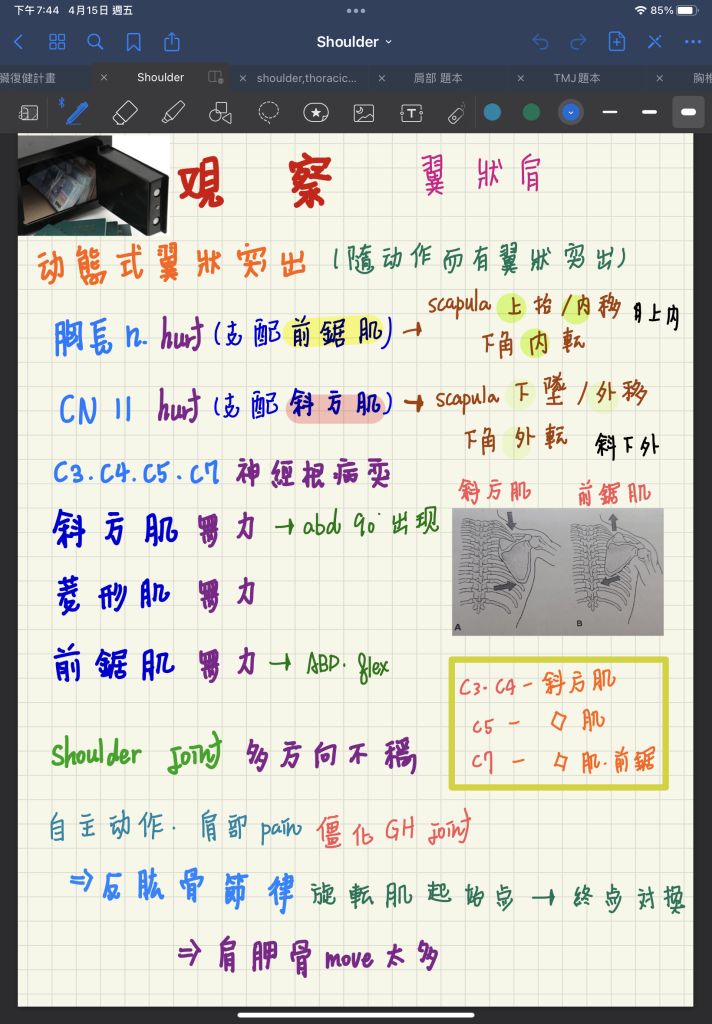 下午7:44 4月15日 週五 85%
Shoulder
臟復健計畫 Shoulder shoulder,thoracic... 肩部 題本 TMJ 題本 胸椎
観察 翼狀肩
动態式翼狀突出 (隨动作而有翼狀突出)
胸長n. hurt (支配前鋸肌) → scapula 上抬/内移 肩上内
下角内転
CN 11 hurt (支配斜方肌) → scapula 下墜/外移
下角外転 斜下外
C3.C4.C5.C7 神經根病变
斜方肌 前鋸肌
斜方肌 無力 → abd 90° 出现
菱形肌 無力
A B
前鋸肌 無力 → ABD. flex
C3.C4 - 斜方肌
C5 - ◇肌
C7 - ◇肌.前鋸
Shoulder joint 多方向不穩
自主动作. 肩部 pain 僵化 GH joint
⇒ 反肱骨節律 旋転肌起始点 → 终点対換
⇒ 肩胛骨 move 太多